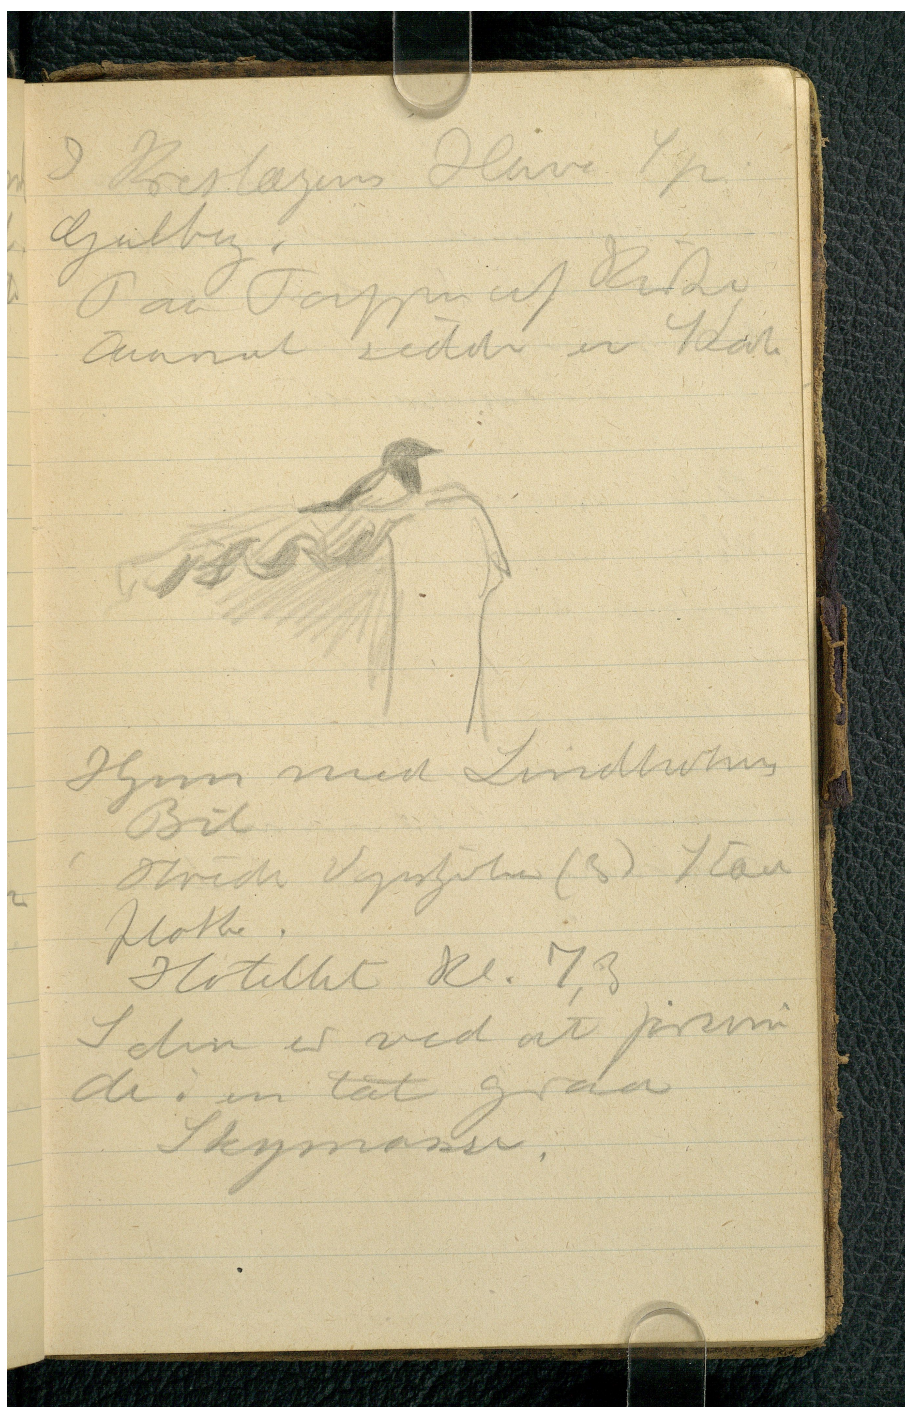 I Kreslægens Have Sp.
Gulbug.
Paa Toppen af Kirke
taarnet sidder en Skade
Hjem med Lindholms
Bil
Hvide Vipstjerter (3) Stær
flokke.
Hotellet Kl. 7,3
Solen er ved at forsvin
de i en tæt graa
Skymasse.